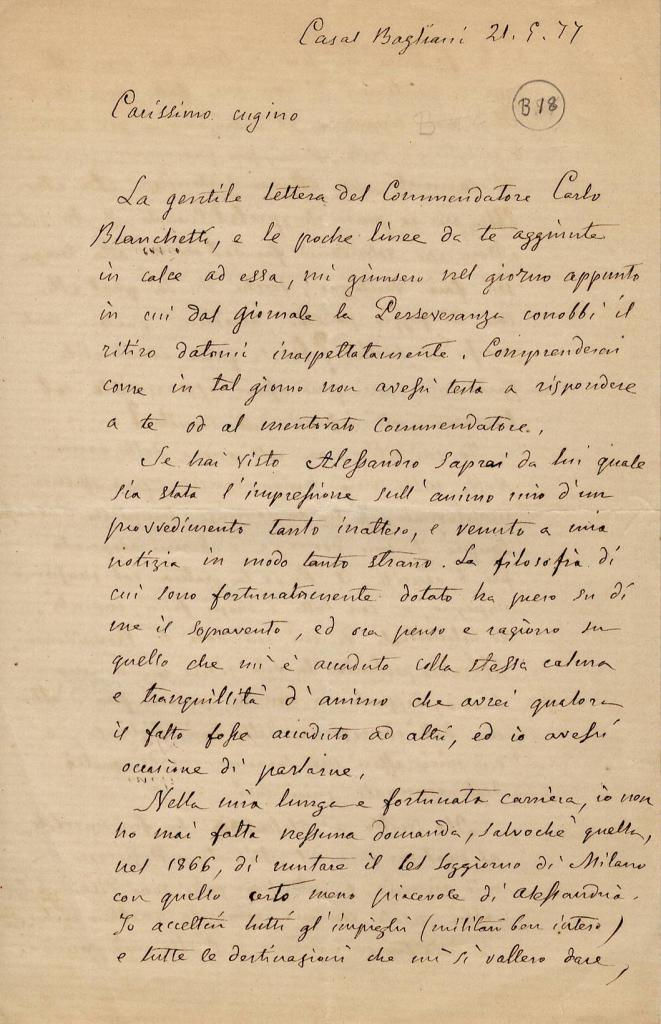 Casal Bagliani 21. 5. 77
B 18
Carissimo cugino
La gentile lettera del Commendatore Carlo
Blanchetti, e le poche linee da te aggiunte
in calce ad essa, mi giunsero nel giorno appunto
in cui dal giornale la Perseveranza conobbi il
ritiro datomi inaspettatamente. Comprenderai
come in tal giorno non avessi testa a rispondere
a te od al mentovato Commendatore.
Se hai visto Alessandro saprai da lui quale
sia stata l'impressione sull'animo mio d'un
provvedimento tanto inatteso, e venuto a mia
notizia in modo tanto strano. La filosofia di
cui sono fortunatamente dotato ha preso su di
me il sopravento, ed ora penso e ragiono su
quello che mi è accaduto colla stessa calma
e tranquillità d'animo che avrei qualora
il fatto fosse accaduto ad altri, ed io avessi
occasione di parlarne.
Nella mia lunga e fortunata carriera, io non
ho mai fatta nessuna domanda, salvochè quella,
nel 1866, di mutare il bel soggiorno di Milano
con quello certo meno piacevole di Alessandria.
Io accettai tutti gl'impieghi (militari ben inteso)
e tutte le destinazioni che mi si vollero dare,